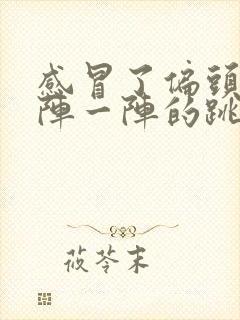 感冒了偏頭
陣一陣的跳
莜苓末